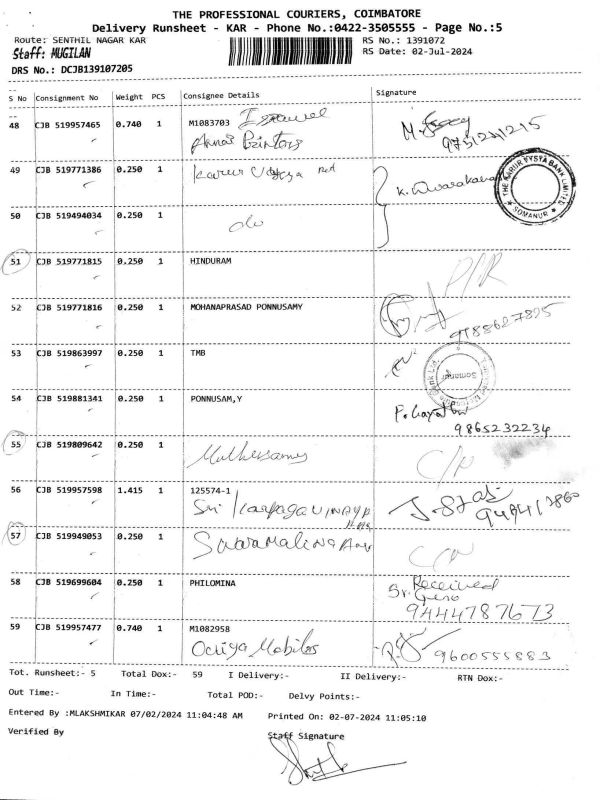 THE PROFESSIONAL COURIERS, COIMBATORE
Delivery Runsheet - KAR - Phone No.:0422-3505555 - Page No.:5
Route: SENTHIL NAGAR KAR
RS No.: 1391072
Staff: MUGILAN
RS Date: 02-Jul-2024
DRS No.: DCJB139107205
S No Consignment No Weight PCS Consignee Details Signature
48 CJB 519957465 0.740 1 M1083703
Annai Printers
49 CJB 519771386 0.250 1 Karur Vysya
THE KARUR VYSYA BANK LIMITED
SOMANUR
50 CJB 519494034 0.250 1 do
51 CJB 519771815 0.250 1 HINDURAM
52 CJB 519771816 0.250 1 MOHANAPRASAD PONNUSAMY
53 CJB 519863997 0.250 1 TMB
Somanur
54 CJB 519881341 0.250 1 PONNUSAM,Y
9865232234
55 CJB 519809642 0.250 1 Muthusamy
56 CJB 519957598 1.415 1 125574-1
Sri
57 CJB 519949053 0.250 1
58 CJB 519699604 0.250 1 PHILOMINA Received
9444787673
59 CJB 519957477 0.740 1 M1082958
Mobiles 9600555883
Tot. Runsheet:- 5 Total Dox:- 59 I Delivery:- II Delivery:- RTN Dox:-
Out Time:- In Time:- Total POD:- Delvy Points:-
Entered By :MLAKSHMIKAR 07/02/2024 11:04:48 AM Printed On: 02-07-2024 11:05:10
Verified By
Staff Signature